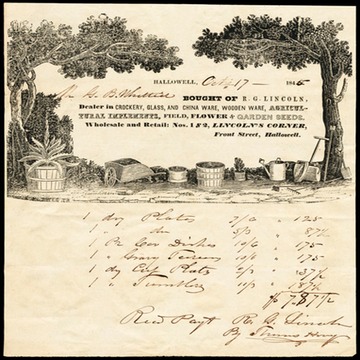 HALLOWELL, Oct 17 - 1845
Mr G. B. Whittier
BOUGHT OF R. G. LINCOLN,
Dealer in CROCKERY, GLASS, AND CHINA WARE, WOODEN WARE, AGRICUL-
TURAL IMPLEMENTS, FIELD, FLOWER & GARDEN SEEDS.
Wholesale and Retail: Nos. 1 & 2, LINCOLN'S CORNER,
Front Street, Hallowell.
1 dz Plates " 1 25
1 " " 87½
1 Pr Cov Dishes 10/6 " 1 75
1 " 10/6 " 1 75
1 dz Plates " 37½
1 " Tumblers " 1 87½
$ 7.87½
Recd Payt R. G. Lincoln
By